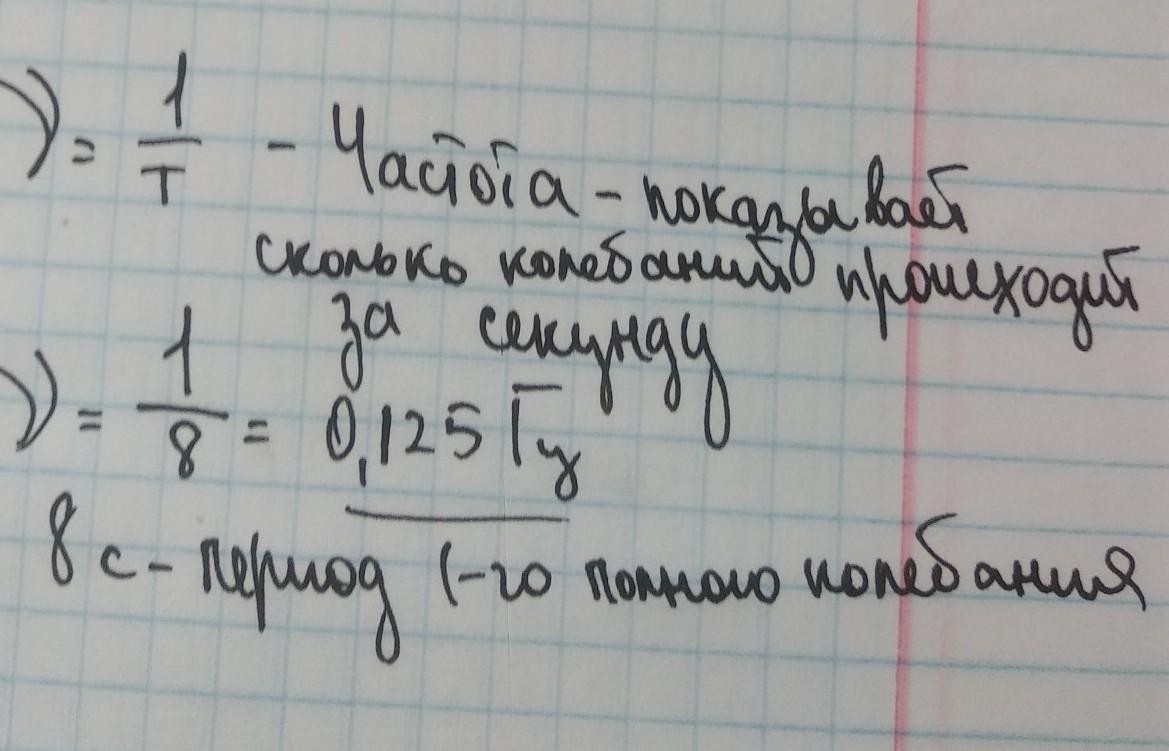 ν = 1/T - Частота - показывает
сколько колебаний происходит
за секунду
ν = 1/8 = 0,125 Гц
8 с - период 1-го полного колебания